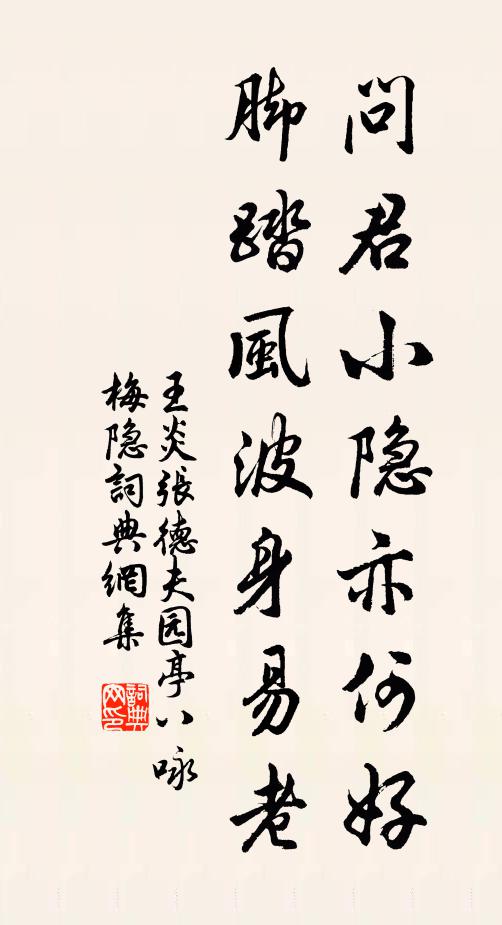 問君小隐亦何好
脚踏風波身易老
王炎張德夫园亭八咏
梅隐詞典網集
詞典
网印